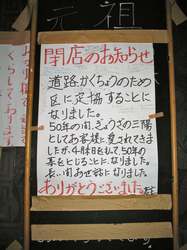 元祖
閉店のお知らせ
道路かくちょうのため
区に定協することに
なりました。
50年の間、ぎょうざの三陽
としてお客様に愛されてきま
したが、4月末日をして50年の
幕をとじることに、なりました。
長い間あせ話になりました。
ありがとうございました。
くらしてあります